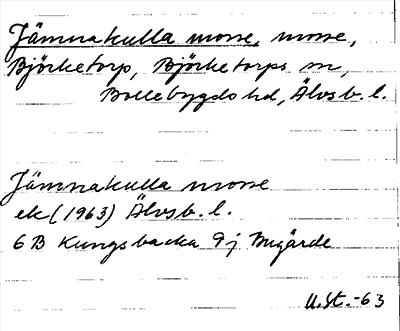 Jämnakulla mosse, mosse,
Björketorp, Björketorps sn,
Bollebygds hd, Älvsb. l.
Jämnakulla mosse
ek (1963) Älvsb. l.
6B Kungsbacka 9j Bugärde
U.St.-63